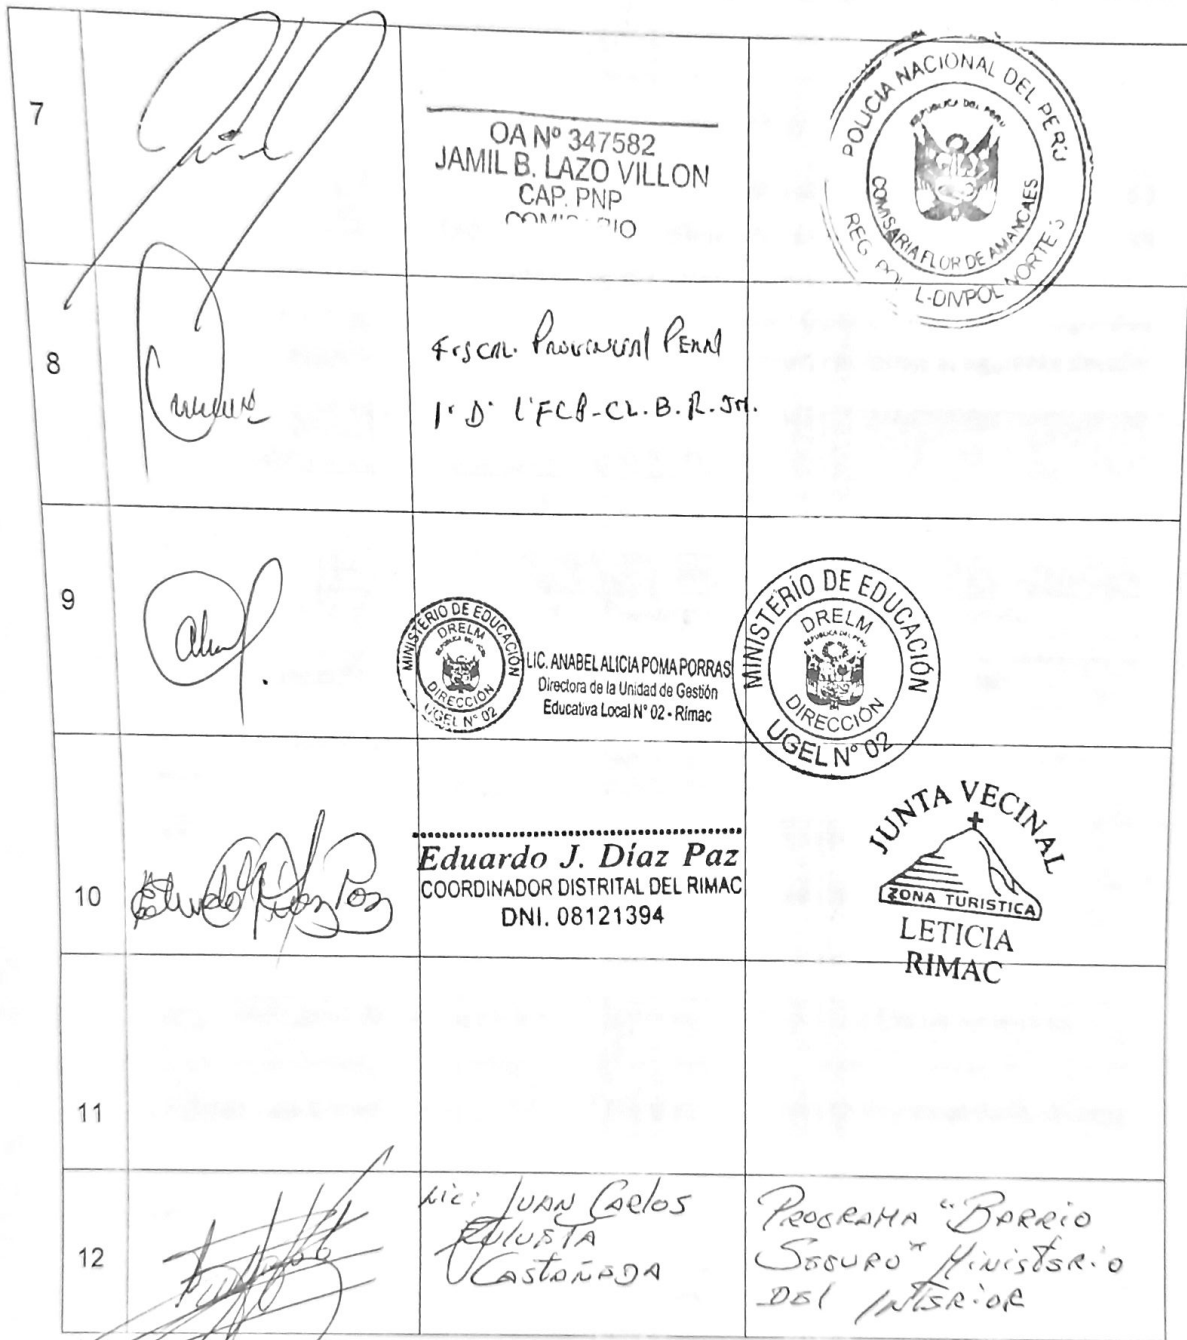 7
OA Nº 347582
JAMIL B. LAZO VILLON
CAP. PNP
POLICIA NACIONAL DEL PERÚ
REPUBLICA DEL PERU
COMISARIA FLOR DE AMANCAES
REG. POL. L-DIVPOL NORTE
8
Fiscal Provincial Penal
9
MINISTERIO DE EDUCACIÓN
DRELM
REPUBLICA DEL PERU
DIRECCIÓN
UGEL N° 02
LIC. ANABEL ALICIA POMA PORRAS
Directora de la Unidad de Gestión
Educativa Local N° 02 - Rimac
MINISTERIO DE EDUCACIÓN
DRELM
REPUBLICA DEL PERU
DIRECCIÓN
UGEL N° 02
10
Eduardo Díaz Paz
Eduardo J. Díaz Paz
COORDINADOR DISTRITAL DEL RIMAC
DNI. 08121394
JUNTA VECINAL
ZONA TURISTICA
LETICIA
RIMAC
11
12
Lic: JUAN CARlos
CASTAÑEDA
PROGRAMA "BARRIO
SEGURO" MINISTERIO
DEl INTERIOR